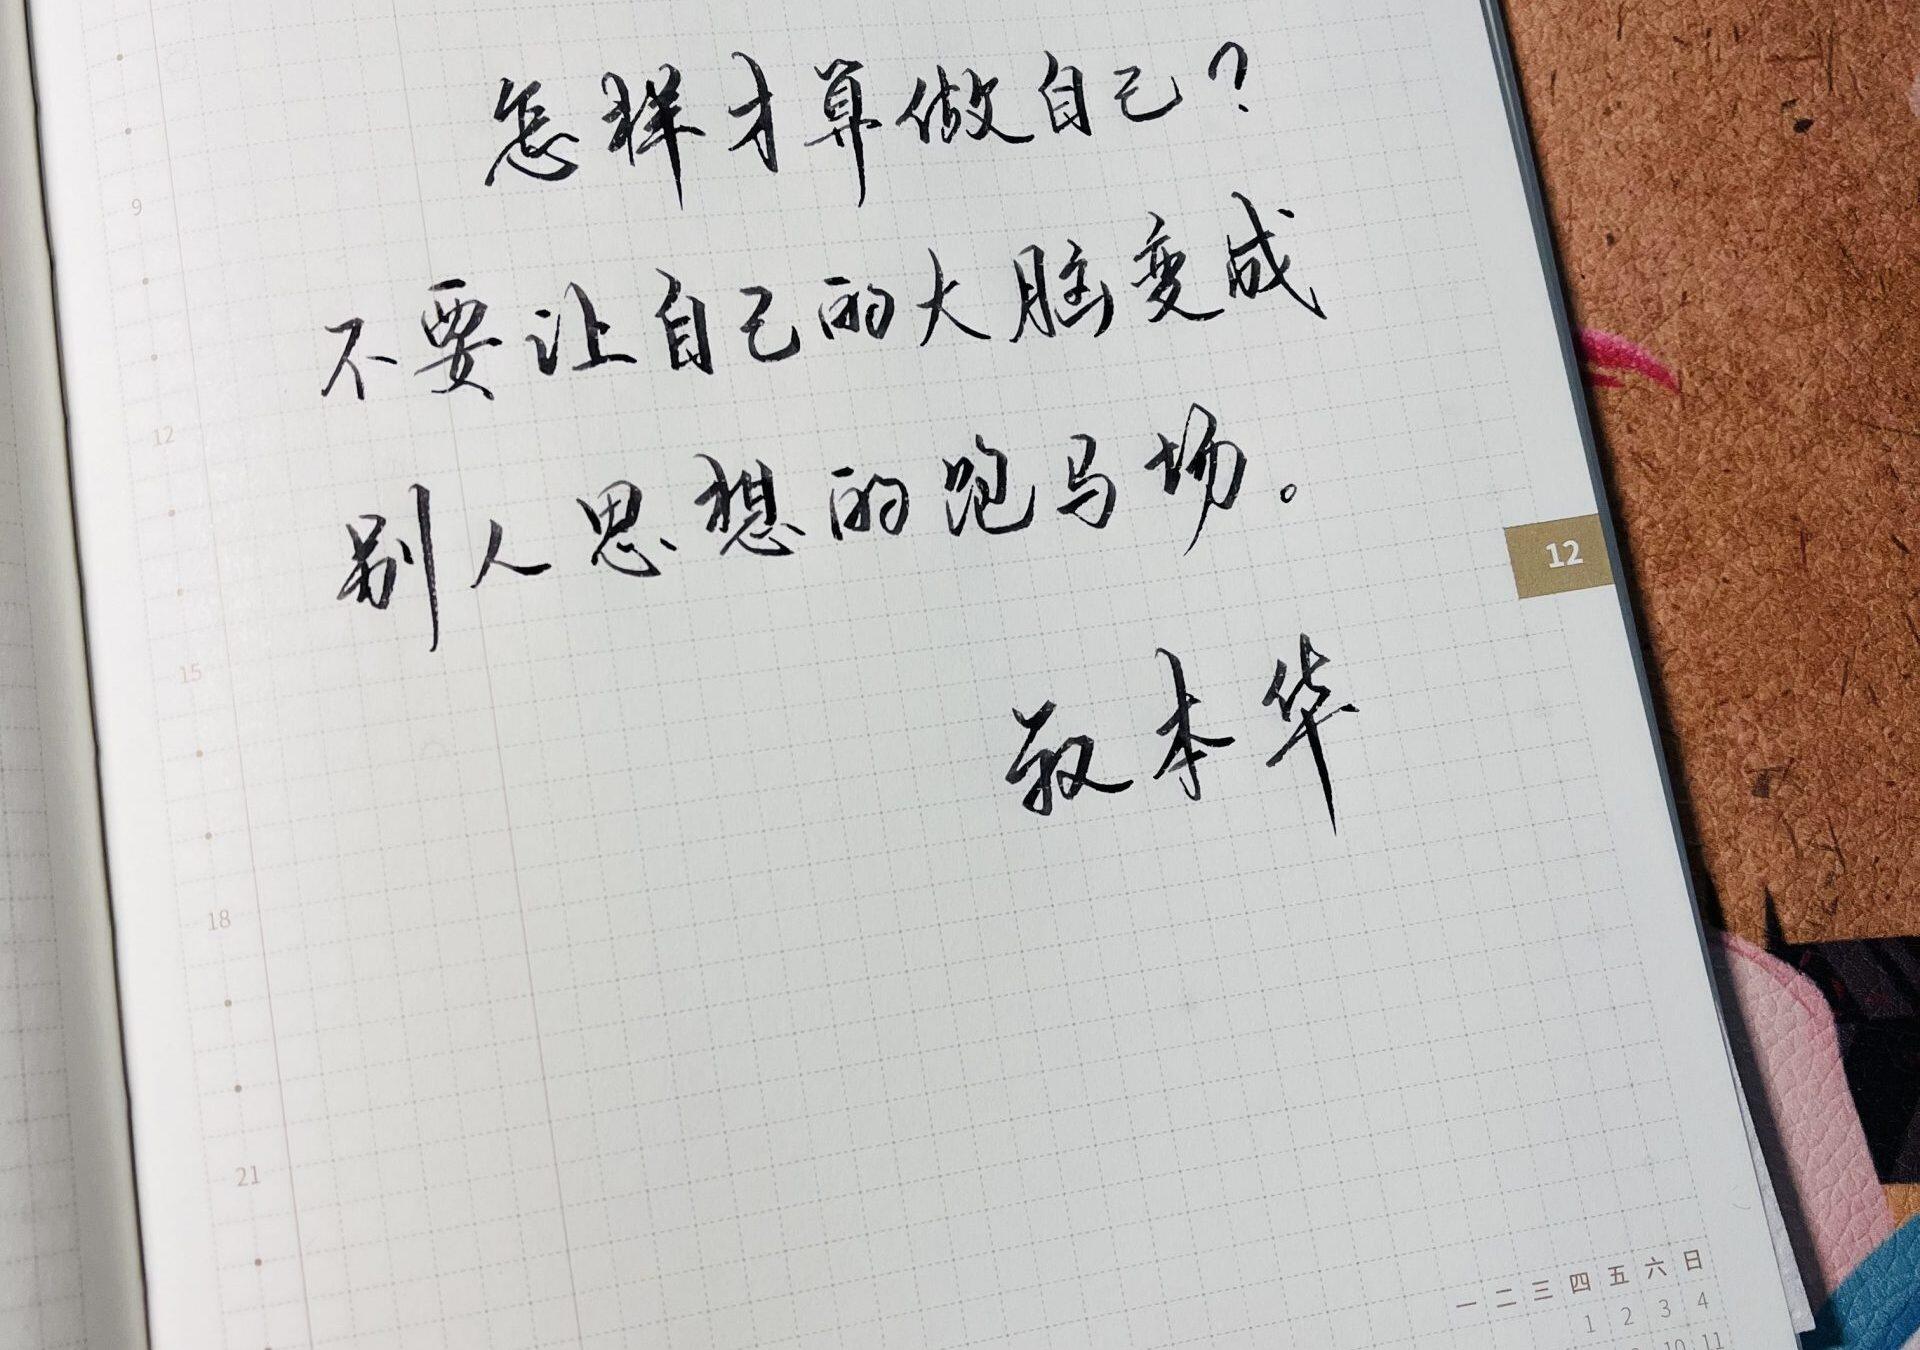 怎样才算做自己?
不要让自己的大脑变成
别人思想的跑马场。
叔本华
9
12
15
18
21
12
一 二 三 四 五 六 日
1 2 3 4
10 11